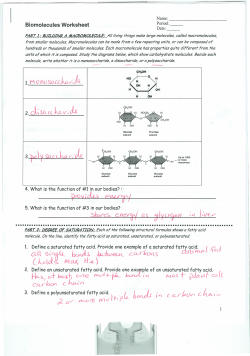 Name:
Biomolecules Worksheet
Period:
Date:
PART 1: BUILDING A MACROMOLECULE: All living things make large molecules, called macromolecules,
from smaller molecules. Macromolecules can be made from a few repeating units, or can be composed of
hundreds or thousands of smaller molecules. Each macromolecule has properties quite different from the
units of which it is composed. Study the diagrams below, which show carbohydrate molecules. Beside each
molecule, write whether it is a monosaccharide, a disaccharide, or a polysaccharide.
1. monosaccharide
2. disaccharide
3. polysaccharide
4. What is the function of #1 in our bodies?
provides energy
5. What is the function of #3 in our bodies?
Stores energy as glycogen in liver
PART 2: DEGREE OF SATURATION: Each of the following structural formulas shows a fatty acid
molecule. On the line, identify the fatty acid as saturated, unsaturated, or polyunsaturated.
1. Define a saturated fatty acid. Provide one example of a saturated fatty acid.
all single bonds between carbons animal fat
(holds max H's)
2. Define an unsaturated fatty acid. Provide one example of an unsaturated fatty acid.
Has at least one multiple bond in most plant oils
carbon chain
3. Define a polyunsaturated fatty acid.
2 or more multiple bonds in carbon chain
1